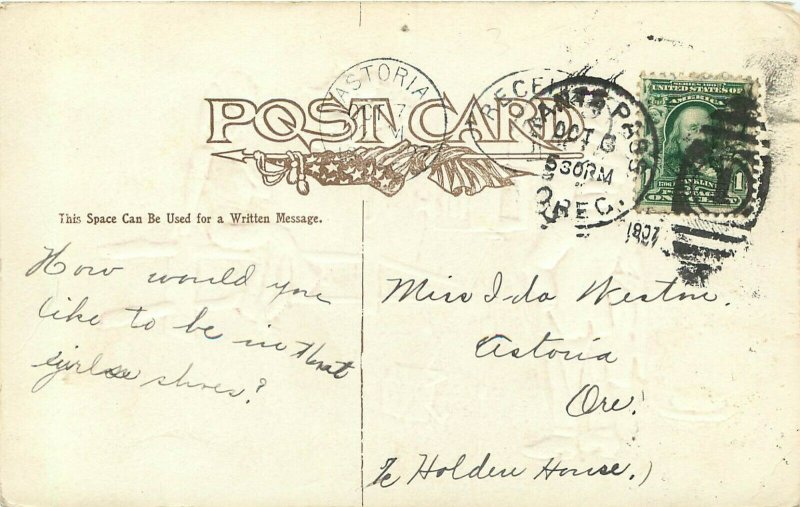 POST CARD
ASTORIA
RECEI
GRANTS PASS
OCT 6
530 PM
OREG.
1907
SERIES 1902
UNITED STATES OF
AMERICA
FRANKLIN
POSTAGE
ONE
1
This Space Can Be Used for a Written Message.
How would you
like to be in that
girls shoes?
Miss Ida Weston.
Astoria
Ore.
℅ Holden House.)